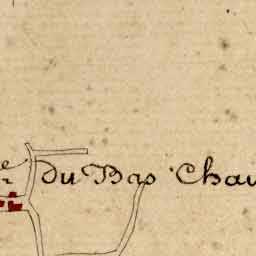 du Bas Chau